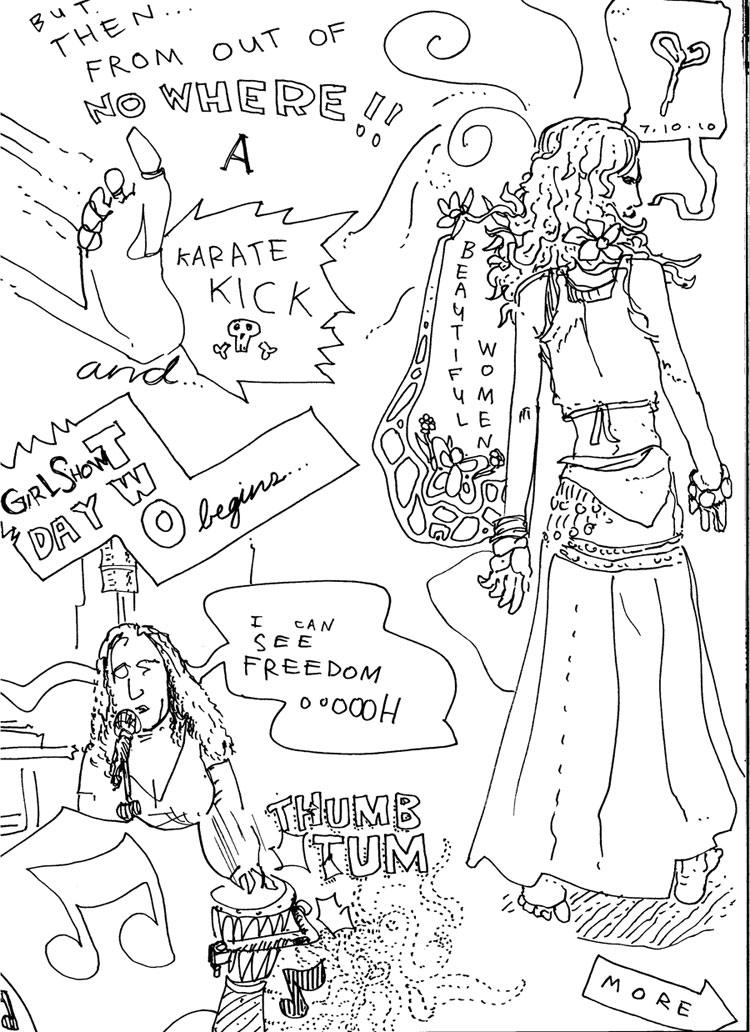 BUT.
THEN...
FROM OUT OF
NOWHERE!!
A
KARATE
KICK
and...
GIRLSHOW
DAY TWO
begins...
7.10.10
BEAUTIFUL
WOMEN
I CAN
SEE
FREEDOM
OOOOOH
THUMB
TUM
MORE